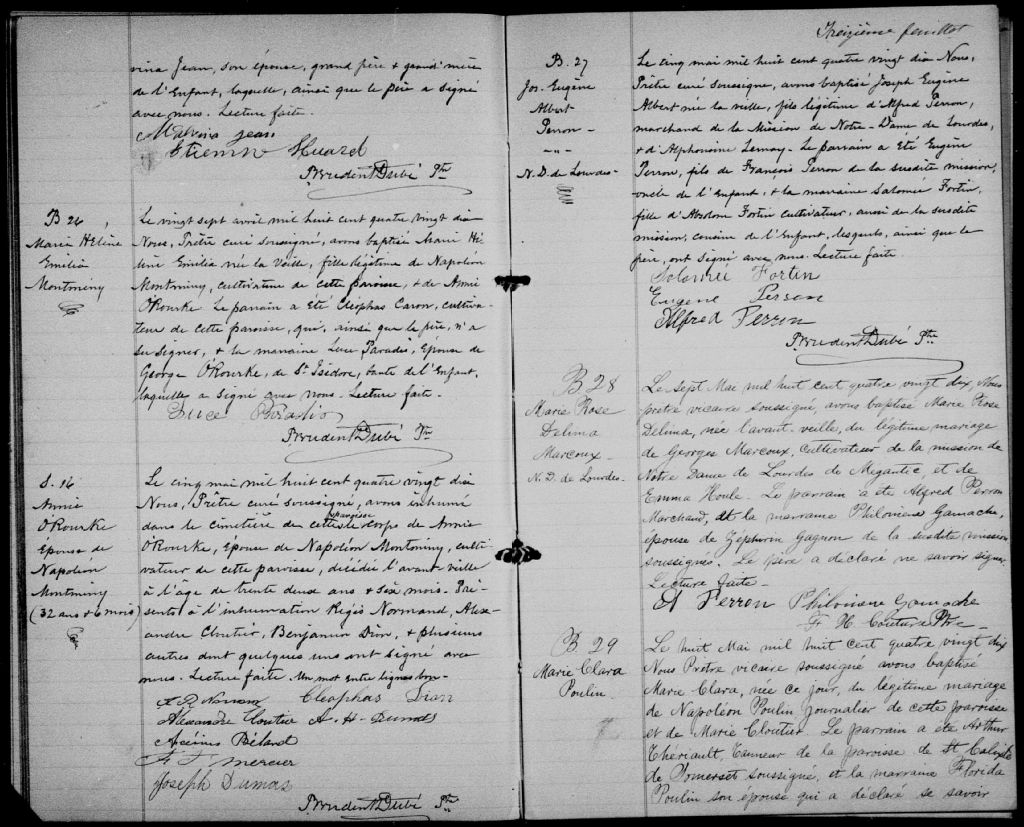 vina Jean, son épouse, grand père & grand'mère
de l'Enfant, laquelle, ainsi que le père a signé
avec nous. Lecture faite.
Malvina Jean
Etienne Huard
Prudent Dubé Ptre
B 26
Marie Hélène
Emilia
Montminy
Le vingt sept avril mil huit cent quatre vingt dix
Nous, Prêtre curé soussigné, avons baptisé Marie Hé
lène Emilia née la Veille, fille légitime de Napoléon
Montminy, cultivateur de cette paroisse, & de Annie
O'Rourke Le parrain a été Cléophas Caron, cultiva-
teur de cette paroisse, qui, ainsi que le père, n'a
su signer, & la marraine Luce Paradis, Epouse de
George O'Rourke, de St Isidore, tante de l'Enfant,
laquelle a signé avec nous. Lecture faite.
Luce
Prudent Dubé Ptre
S. 14
Annie
O'Rourke
Epouse de
Napoléon
Montminy
(32 ans & 6 mois)
Le cinq mai mil huit cent quatre vingt dix
Nous, Prêtre curé soussigné, avons inhumé
paroisse
dans le cimetière de cette le corps de Annie
O'Rourke, Epouse de Napoléon Montminy, culti-
vateur de cette paroisse, décédée l'avant veille
à l'âge de trente deux ans & six mois. Pré-
sents à l'inhumation Régis Normand, Alex-
andre Cloutier, Benjamin Dion, & plusieurs
autres dont quelques uns ont signé avec
nous. Lecture faite Un mot entre lignes bon-
Cleophas Dion
Alexandre Cloutier A. H. Dumas
Arsénius Béland
F. Mercier
Joseph Dumas
Prudent Dubé Ptre
Treizième feuillet
B. 27
Jos. Eugène
Albert
Perron -
- " -
N. D. de Lourdes-
Le cinq mai mil huit cent quatre vingt dix Nous,
Prêtre curé soussigné, avons baptisé Joseph Eugène
Albert né la veille, fils légitime d'Alfred Perron,
marchand de la Mission de Notre-Dame de Lourdes,
& d'Alphonsine Lemay. Le parrain a Eté Eugène
Perron, fils de François Perron de la susdite mission,
oncle de l'Enfant, & la marraine Salomée Fortin,
fille d'Absolom Fortin cultivateur, aussi de la susdite
mission, cousine de l'Enfant, lesquels, ainsi que le
père, ont signé avec nous. Lecture faite.
Salomée Fortin
Eugene Perron
Alfred Perron
Prudent Dubé Ptre
B 28
Marie Rose
Delima
Marcoux-
N. D. de Lourdes.
Le sept Mai mil huit cent quatre vingt dix, Nous
prêtre vicaire soussigné, avons baptisé Marie Rose
Delima, née l'avant-veille, du légitime mariage
de Georges Marcoux, cultivateur de la mission de
Notre Dame de Lourdes de Megantic et de
Emma Houle. Le parrain a été Alfred Perron
Marchand, et la marraine Philomène Gamache,
épouse de Zephirin Gagnon de la susdite mission
soussignés. Le père a déclaré ne savoir signer
Lecture faite-
Al Perron Philomene Gamache
F. X. Couture Ptre -
B. 29
Marie Clara
Poulin
Le huit Mai mil huit cent quatre vingt dix
Nous Prêtre vicaire soussigné avons baptisé
Marie Clara, née ce jour, du légitime mariage
de Napoléon Poulin journalier de cette paroisse
et de Marie Cloutier. Le parrain a été Arthur
Thériault, Tanneur de la paroisse de St Calixte
de Somerset soussigné, et la marraine Florida
Poulin son épouse qui a déclaré ne savoir